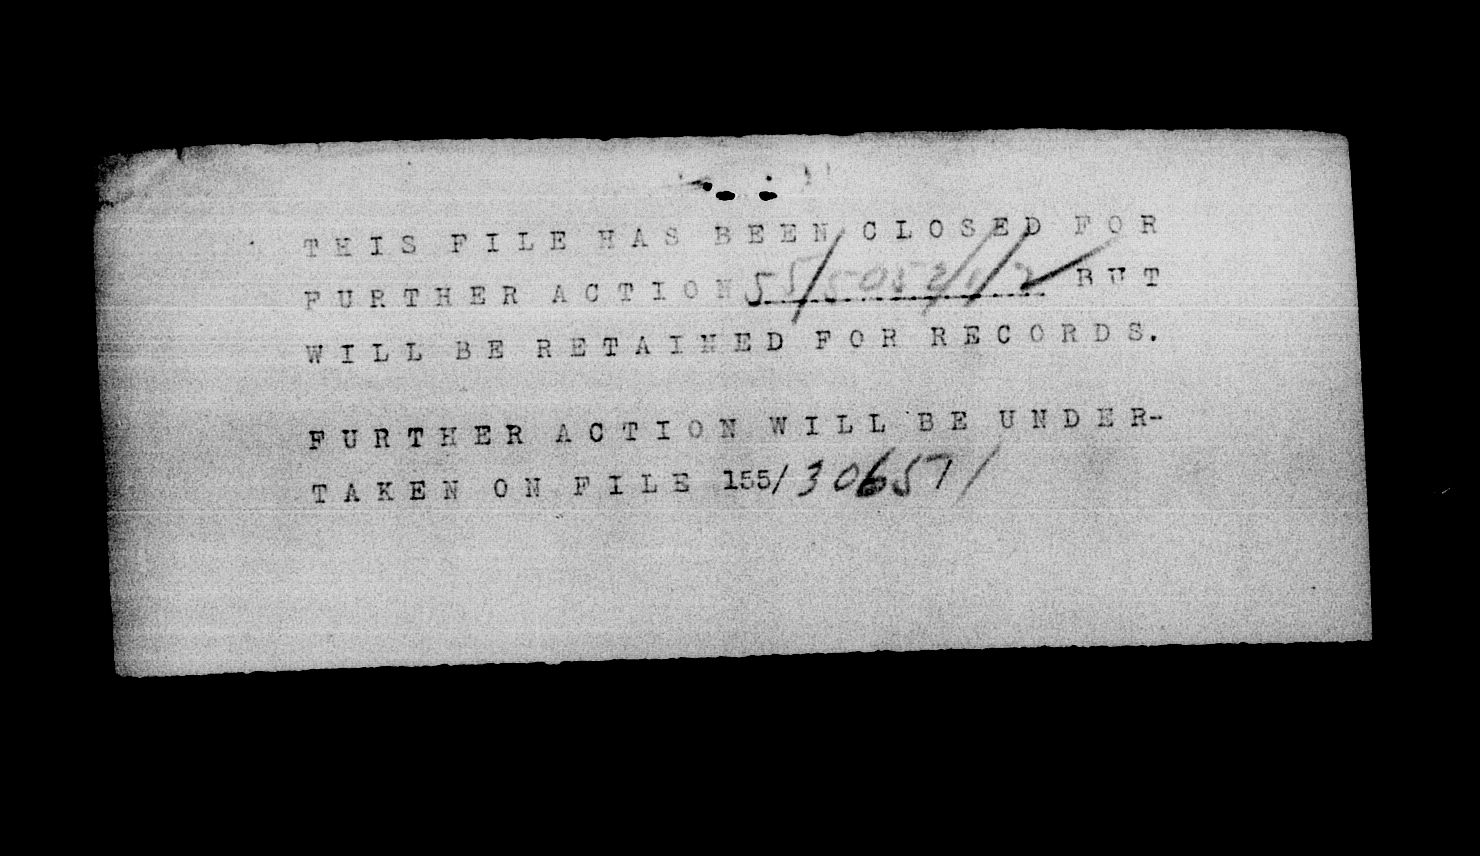 THIS FILE HAS BEEN CLOSED FOR
FURTHER ACTION 55/5052/1/2 BUT
WILL BE RETAINED FOR RECORDS.
FURTHER ACTION WILL BE UNDER-
TAKEN ON FILE 155/306571